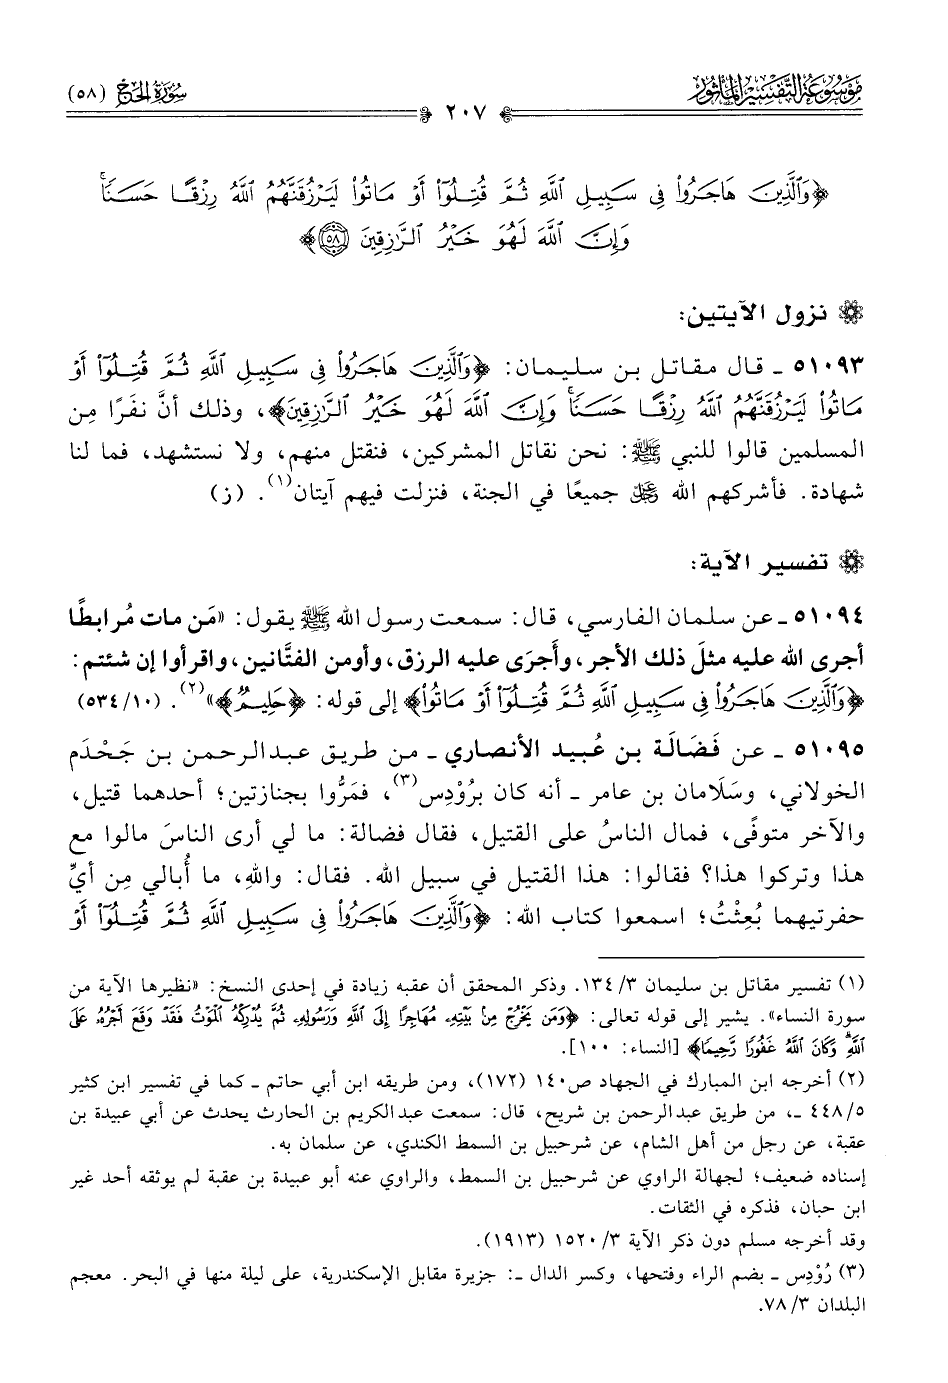 موسوعة التفسير المأثور
سورة الحج (٥٨)
٢٠٧
﴿وَٱلَّذِينَ هَاجَرُوا۟ فِى سَبِيلِ ٱللَّهِ ثُمَّ قُتِلُوٓا۟ أَوْ مَاتُوا۟ لَيَرْزُقَنَّهُمُ ٱللَّهُ رِزْقًا حَسَنًا ۚ
وَإِنَّ ٱللَّهَ لَهُوَ خَيْرُ ٱلرَّٰزِقِينَ ٥٨﴾
نزول الآيتين:
٥١٠٩٣ ـ قال مقاتل بن سليمان: ﴿وَٱلَّذِينَ هَاجَرُوا۟ فِى سَبِيلِ ٱللَّهِ ثُمَّ قُتِلُوٓا۟ أَوْ
مَاتُوا۟ لَيَرْزُقَنَّهُمُ ٱللَّهُ رِزْقًا حَسَنًا ۚ وَإِنَّ ٱللَّهَ لَهُوَ خَيْرُ ٱلرَّٰزِقِينَ﴾، وذلك أنَّ نفَرًا مِن
المسلمين قالوا للنبي ﷺ: نحن نقاتل المشركين، فنقتل منهم، ولا نستشهد، فما لنا
شهادة. فأشركهم الله ﷿ جميعًا في الجنة، فنزلت فيهم آيتان(١). (ز)
تفسير الآية:
٥١٠٩٤ ـ عن سلمان الفارسي، قال: سمعت رسول الله ﷺ يقول: «مَن مات مُرابطًا
أجرى الله عليه مثلَ ذلك الأجر، وأجرَى عليه الرزق، وأومن الفتَّانين، واقرأوا إن شئتم:
﴿وَٱلَّذِينَ هَاجَرُوا۟ فِى سَبِيلِ ٱللَّهِ ثُمَّ قُتِلُوٓا۟ أَوْ مَاتُوا۟﴾ إلى قوله: ﴿حَلِيمٌ﴾»(٢). (١٠/٥٣٤)
٥١٠٩٥ ـ عن فَضَالَة بن عُبيد الأنصاري ـ من طريق عبدالرحمن بن جَحْدَم
الخولاني، وسَلَامان بن عامر ـ أنه كان برُوْدِس(٣)، فمَرُّوا بجنازتين؛ أحدهما قتيل،
والآخر متوفًى، فمال الناسُ على القتيل، فقال فضالة: ما لي أرى الناسَ مالوا مع
هذا وتركوا هذا؟ فقالوا: هذا القتيل في سبيل الله. فقال: واللهِ، ما أُبالي مِن أيِّ
حفرتيهما بُعِثْتُ؛ اسمعوا كتاب الله: ﴿وَٱلَّذِينَ هَاجَرُوا۟ فِى سَبِيلِ ٱللَّهِ ثُمَّ قُتِلُوٓا۟ أَوْ
(١) تفسير مقاتل بن سليمان ٣/ ١٣٤. وذكر المحقق أن عقبه زيادة في إحدى النسخ: «نظيرها الآية من
سورة النساء». يشير إلى قوله تعالى: ﴿وَمَن يَخْرُجْ مِنۢ بَيْتِهِۦ مُهَاجِرًا إِلَى ٱللَّهِ وَرَسُولِهِۦ ثُمَّ يُدْرِكْهُ ٱلْمَوْتُ فَقَدْ وَقَعَ أَجْرُهُۥ عَلَى
ٱللَّهِ ۗ وَكَانَ ٱللَّهُ غَفُورًا رَّحِيمًا﴾ [النساء: ١٠٠].
(٢) أخرجه ابن المبارك في الجهاد ص١٤٠ (١٧٢)، ومن طريقه ابن أبي حاتم ـ كما في تفسير ابن كثير
٥/ ٤٤٨ ـ، من طريق عبدالرحمن بن شريح، قال: سمعت عبدالكريم بن الحارث يحدث عن أبي عبيدة بن
عقبة، عن رجل من أهل الشام، عن شرحبيل بن السمط الكندي، عن سلمان به.
إسناده ضعيف؛ لجهالة الراوي عن شرحبيل بن السمط، والراوي عنه أبو عبيدة بن عقبة لم يوثقه أحد غير
ابن حبان، فذكره في الثقات.
وقد أخرجه مسلم دون ذكر الآية ٣/ ١٥٢٠ (١٩١٣).
(٣) رُوْدِس ـ بضم الراء وفتحها، وكسر الدال ـ: جزيرة مقابل الإسكندرية، على ليلة منها في البحر. معجم
البلدان ٣/ ٧٨.